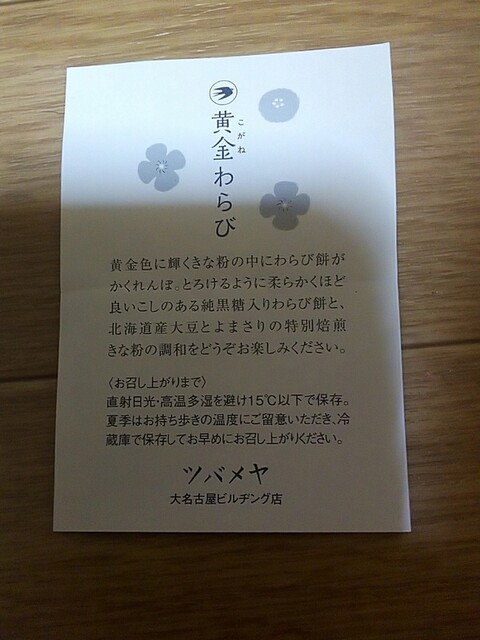 黄金わらび
こがね
黄金色に輝くきな粉の中にわらび餅が
かくれんぼ。とろけるように柔らかくほど
良いこしのある純黒糖入りわらび餅と、
北海道産大豆とよまさりの特別焙煎
きな粉の調和をどうぞお楽しみください。
〈お召し上がりまで〉
直射日光・高温多湿を避け15℃以下で保存。
夏季はお持ち歩きの温度にご留意いただき、冷
蔵庫で保存してお早めにお召し上がりください。
ツバメヤ
大名古屋ビルヂング店